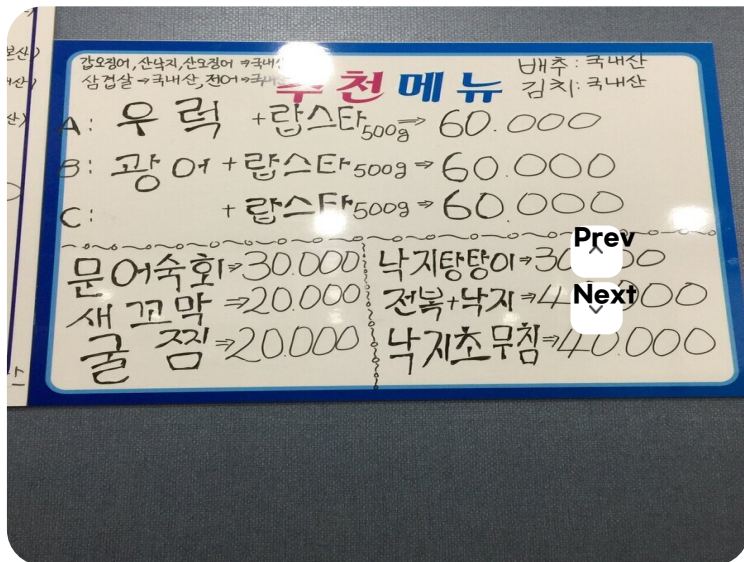 갑오징어, 산낙지, 산오징어 ⇒ 국내산
삼겹살 → 국내산, 전어 → 국내산
배추 : 국내산
김치 : 국내산
추천메뉴
A : 우럭 + 랍스타 500g ⇒ 60.000
B : 광어 + 랍스타 500g ⇒ 60.000
C : + 랍스타 500g ⇒ 60.000
문어숙회 ⇒ 30.000
새꼬막 ⇒ 20.000
굴찜 ⇒ 20.000
낙지탕탕이 ⇒
전복+낙지 ⇒
낙지초무침 ⇒ 40.000
Prev
Next